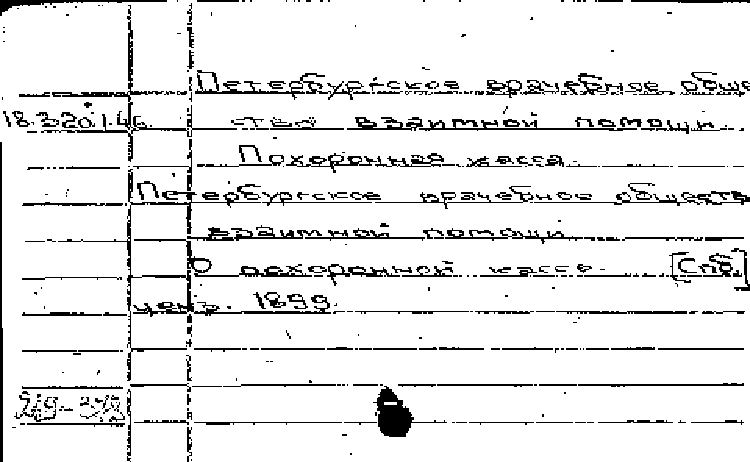 Петербургское врачебное обще
18.320.1.46 ство взаимной помощи.
Похоронная касса.
Петербургское врачебное обществ
взаимной помощи
О похоронной кассе. [Спб.]
ценз. 1899.